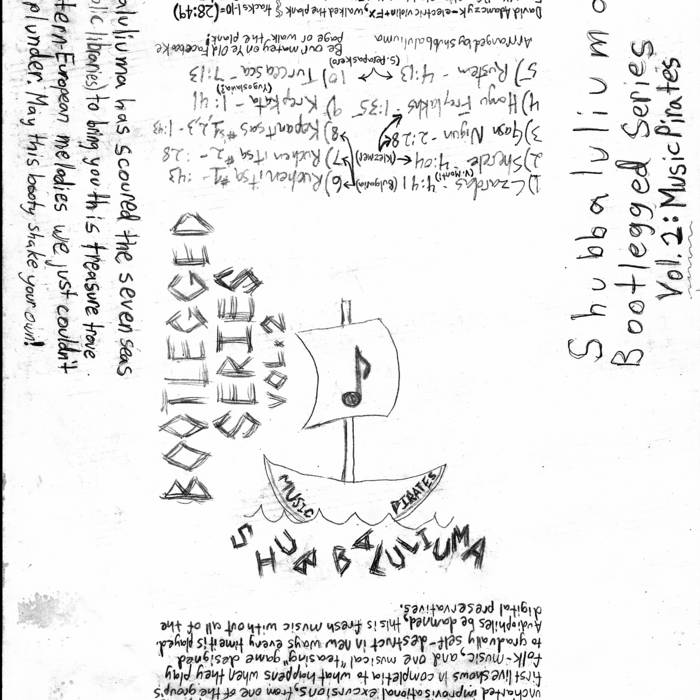 Shubbalulium
Bootlegged Series
Vol. 2: Music Pirates
BOOTLEGGED
SERIES
VOL. 2
MUSIC
PIRATES
SHUBBALULIUMA
aluliuma has scoured the seven seas
blic libraries) to bring you this treasure trove
tern-European melodies we just couldn't
plunder. May this booty shake your own!
1) Czardas - 4:41 (V. Monti)
2) Sherele - 4:04
3) Nigun - 2:28
4) Hongu Freylakhs - 1:35
5) Rustem - 4:13
(Bulgaria)
(Klezmer)
6) Ruchenitsa #1 - :43
7) Ruchenitsa #2 - :28
8) Kopanitsas #1,2,3 - 1:43
9) Krekata - 1:41
(Yugoslavia?)
10) Turceasca - 7:13
Arranged by shubbaluliuma
Be our matey on Ye Old Facebooke
page or walk the plank!
David Adamczyk - electric violin + FX, walked the plank tracks 1-10 = (28:49)
uncharted improvisational excursions, from one of the group's
first live shows in completion to what happens when they play
folk-music, and one musical "teasing" game designed
to gradually self-destruct in new ways every time it is played
Audiophiles be damned, this is fresh music without all of the
digital preservatives.